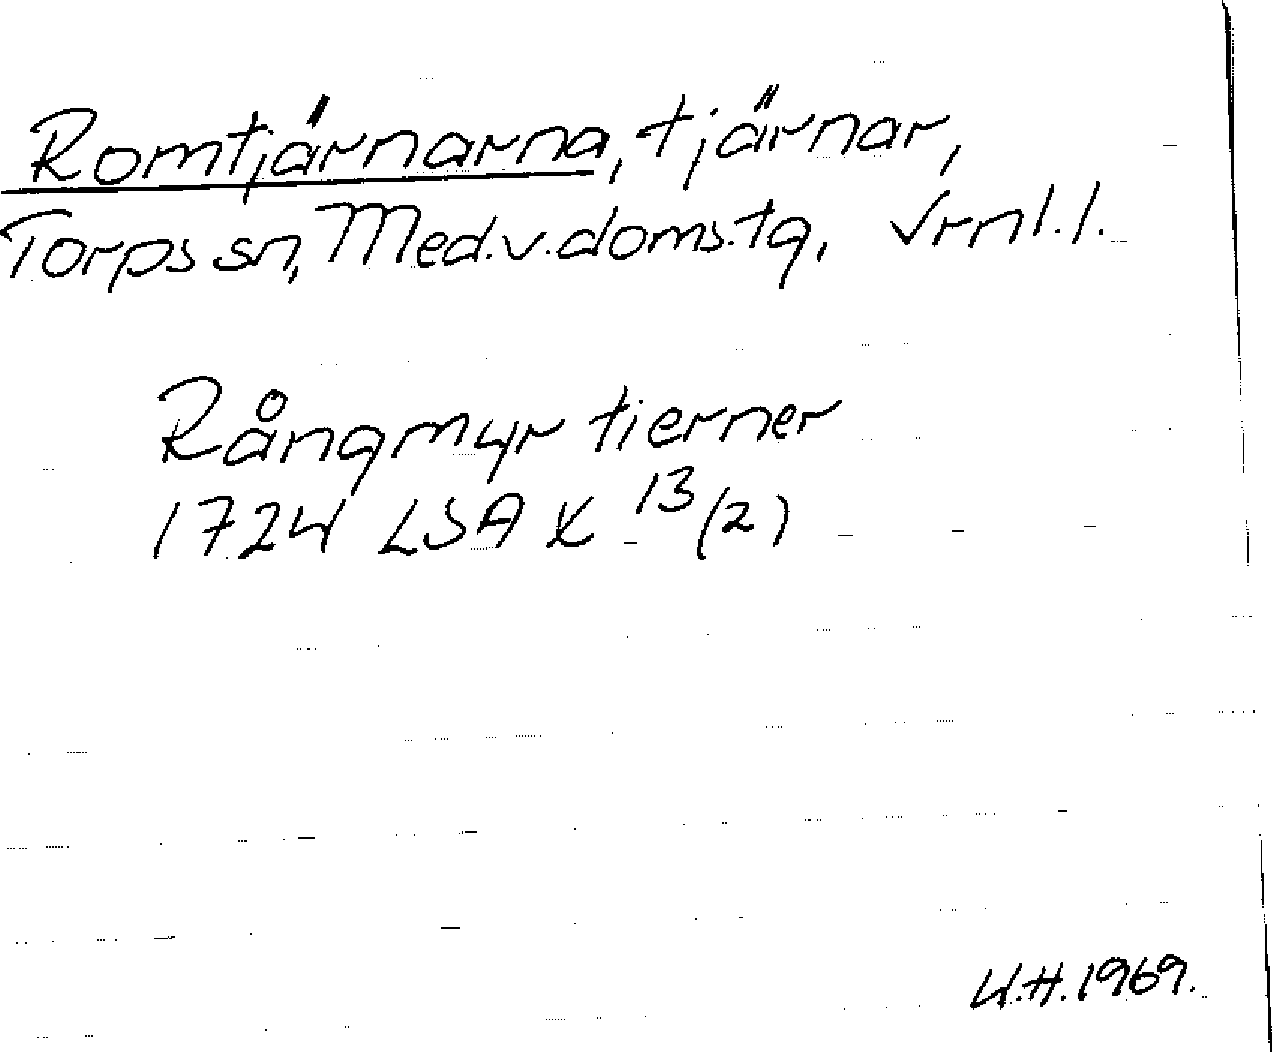 Romtjärnarna, tjärnar,
Torps sn, Med.v.doms.tg, Vrnl.l.
Rångmyr tierner
1724 LSA X 13/(2)
U.H.1969.